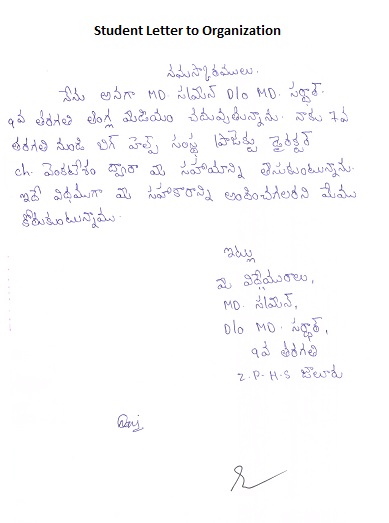 Student Letter to Organization
నమస్కారములు.
నేను అనగా MD. సల్మాన్ D/o MD. సర్దార్.
9వ తరగతి ఇంగ్లీష్ మీడియం చదువుతున్నాను. నాకు 7వ
తరగతి నుండి బిగ్ హెల్ప్ సంస్థ ప్రాజెక్టు డైరెక్టర్
ch. వెంకటేశం ద్వారా మీ సహాయాన్ని తీసుకుంటున్నాను.
ఇదే విధముగా మీ సహకారాన్ని అందించగలరని మేము
కోరుకుంటున్నాము.
ఇట్లు
మీ విధేయురాలు,
MD. సల్మాన్,
D/o MD. సర్దార్,
9వ తరగతి
Z.P.H.S